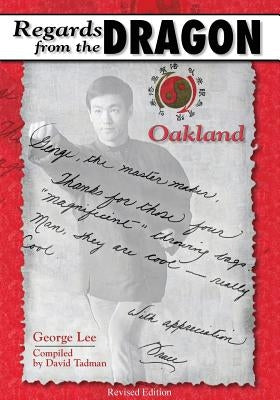 Regards
from the
DRAGON
Oakland
George, the master maker,
Thanks for those four
"magnificient" throwing bags.
Man, they are cool — really
Cool
With appreciation
Bruce
George Lee
Compiled
by David Tadman
Revised Edition